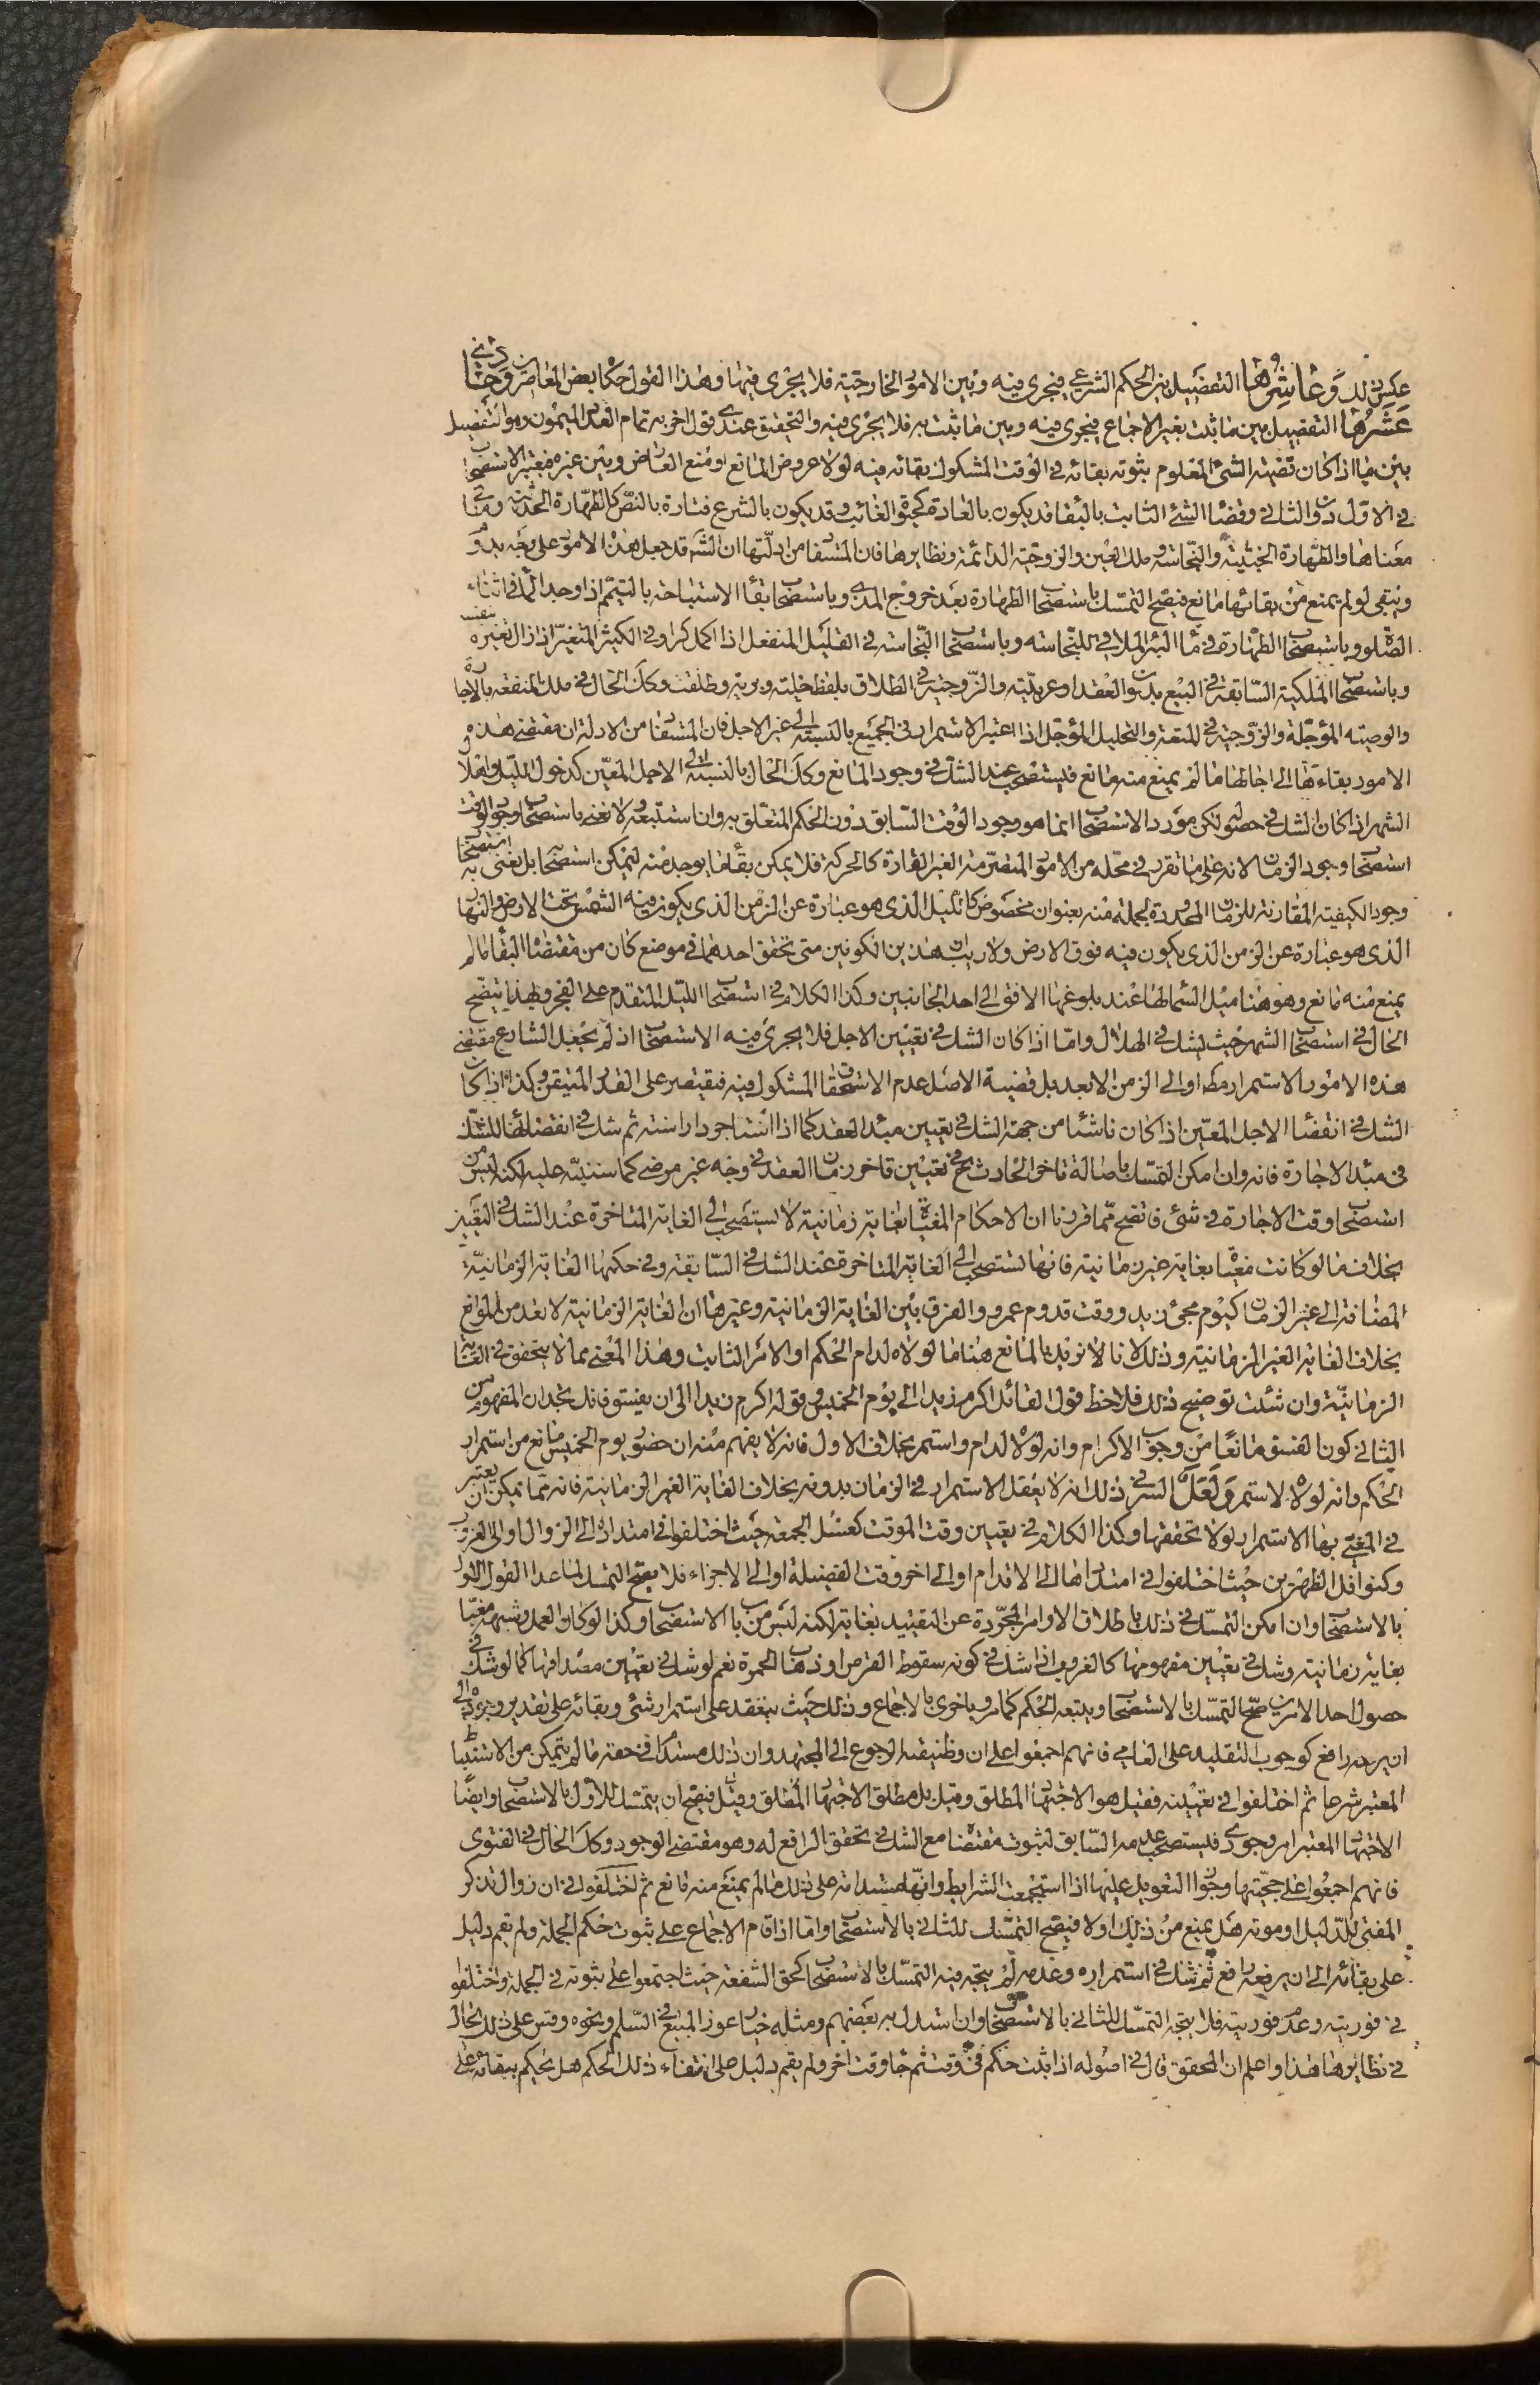 عكس ذلك وعاشرها التفصيل بين الحكم الشرعي فيجري فيه وبين الامور الخارجية فلا يجري فيها وهذا القول حكاه بعض المعاصرين وحادي
عشرها التفصيل بين ما ثبت بغير الاجماع فيجري فيه وبين ما ثبت به فلا يجري فيه والتحقيق عندي قول اخر به تمام العدد الميمون وهو التفصيل
بين ما اذا كان قضية الشئ المعلوم ثبوته بقائه في الوقت المشكوك بقائه فيه لولا عروض المانع او منع العارض وبين غيره فيعتبر الاستصحاب
في الاول دون الثاني وقضاء الشئ الثابت بالبقاء قد يكون بالعادة كحيوة الغائب وقد يكون بالشرع فتارة بالنص كالطهارة الحدثية وما في
معناها والطهارة الخبثية والنجاسة وملك العين والزوجية الدائمة ونظايرها فان المستفاد من ادلتها ان الشرع قد جعل هذه الامور على وجه يدوم
ويبقى لو لم يمنع من بقائها مانع فيصح التمسك باستصحاب الطهارة بعد خروج المذي وباستصحاب بقاء الاستباحة بالتيمم اذا وجد الماء في اثناء
الصلوة وباستصحاب الطهارة في ماء البئر الملاقي للنجاسة وباستصحاب النجاسة في القليل المنفعل اذا اكمل كرا وفي الكثير المتغير اذا زال تغيره بنفسه
وباستصحاب الملكية السابقة في البيع بدون العقد او عربيته والزوجية في الطلاق بلفظ خلية وبرية وطلقت وكذا الحال في ملك المنفعة بالاجارة
والوصية المؤجلة والزوجية في المتعة والتحليل المؤجل اذا اعتبر الاستمرار في الجميع بالنسبة الى غير الاجل فان المستفاد من الادلة ان مقتضى هذه
الامور بقاءها الى اجالها ما لم يمنع منه مانع فيستصحب عند الشك في وجود المانع وكذا الحال بالنسبة الى الاجل المعين كدخول الليل وهلال
الشهر اذا كان الشك في حصوله لكن مورد الاستصحاب انما هو وجود الوقت السابق دون الحكم المتعلق به وان استتبعه ولا نعني باستصحاب وجود الوقت
استصحاب وجود الزمان لانه على ما تقرر في محله من الامور المتصرمة الغير القارة كالحركة فلا يمكن بقاء ما يوجد منه ليمكن استصحابه بل نعني به استصحاب
وجود الكيفية المقارنة للزمان المحدودة لجملة منه بعنوان مخصوص كالليل الذي هو عبارة عن الزمن الذي يكون فيه الشمس تحت الارض والنهار
الذي هو عبارة عن الزمن الذي يكون فيه فوق الارض ولا ريب ان هذين الكونين متى تحقق احدهما في موضع كان من مقتضاه البقاء ما لم
يمنع منه مانع وهو هنا ميل الشمس الحاصل عند بلوغها الافق الى احد الجانبين وكذا الكلام في استصحاب الليل المتقدم على الفجر وبهذا يتضح
الحال في استصحاب الشهر حيث يشك في الهلال واما اذا كان الشك في تعيين الاجل فلا يجري فيه الاستصحاب اذ لم يجعل الشارع مقتضى
هذه الامور الاستمرار مط او الى الزمن الابعد بل قضية الاصل عدم الاستحقاق المشكوك فيه فيقتصر على القدر المتيقن وكذا اذا كان
الشك في انقضاء الاجل المعين اذا كان ناشئا من جهة الشك في تعيين مبدء العقد كما اذا استاجر دارا سنة ثم شك في انقضائها للشك
في مبدء الاجارة فانه وان امكن التمسك باصالة تاخر الحادث ح في تعيين تاخر زمان العقد في وجه غير مرضي كما سننبه عليه لكنه ليس من
استصحاب وقت الاجارة في شئ فاتضح مما قررنا ان الاحكام المغياة بغاية زمانية لا تستصحب الى الغاية المتاخرة عند الشك في التعيين
بخلاف ما لو كانت مغياة بغاية غير زمانية فانها تستصحب الى الغاية المتاخرة عند الشك في السابقة وفي حكمها الغاية الزمانية
المضافة الى غير الزمان كيوم مجئ زيد ووقت قدوم عمرو والفرق بين الغاية الزمانية وغيرها ان الغاية الزمانية لا تعد من الموانع
بخلاف الغاية الغير الزمانية وذلك لانا لا نريد بالمانع هنا ما لولاه لدام الحكم او الامر الثابت وهذا المعنى مما لا يتحقق في الغاية
الزمانية وان شئت توضيح ذلك فلاحظ قول القائل اكرم زيدا الى يوم الخميس وقوله اكرم زيدا الى ان يفسق فانك تجد ان المفهوم من
الثاني كون الفسق مانعا من وجوب الاكرام وانه لولاه لدام واستمر بخلاف الاول فانه لا يفهم منه ان حضور يوم الخميس مانع من استمرار
الحكم وانه لولاه لاستمر ولعل السر في ذلك انه لا يعقل الاستمرار في الزمان بدونه بخلاف الغاية الغير الزمانية فانه مما يمكن ان يعتبر
في المغيى بها الاستمرار لولا تحققها وكذا الكلام في تعيين وقت الموقت كغسل الجمعة حيث اختلفوا في امتداده الى الزوال او الى الغروب
وكنوافل الظهرين حيث اختلفوا في امتدادها الى الاقدام او الى اخر وقت الفضيلة او الى الاجزاء فلا يصح التمسك لما عدا القول الاول
بالاستصحاب وان امكن التمسك في ذلك باطلاق الاوامر المجردة عن التقييد بغاية لكنه ليس من باب الاستصحاب وكذا لو كان العمل وشبهه مغيا
بغاية زمانية وشك في تعيين مفهومها كالغروب اذا شك في كونه سقوط القرص او ذهاب الحمرة نعم لو شك في تعيين مصداقها كما لو شك في
حصول احد الامرين صح التمسك بالاستصحاب ويتبعه الحكم كما مر وباخرى بالاجماع وذلك حيث ينعقد على استمرار شئ وبقائه على تقدير وجوده الى
ان يرفعه رافع كوجوب التقليد على العامي فانهم اجمعوا على ان وظيفته الرجوع الى المجتهد وان ذلك مستدام في حقه ما لم يتمكن من الاستنباط
المعتبر شرعا ثم اختلفوا في تعيينه فقيل هو الاجتهاد المطلق وقيل بل مطلق الاجتهاد فيصح ان يتمسك للاول بالاستصحاب وايضا
الاجتهاد المعتبر امر وجودي فيستصحب عدمه السابق لثبوت مقتضاه مع الشك في تحقق الرافع له وهو مقتضى الوجود وكذا الحال في الفتوى
فانهم اجمعوا على حجيتها وجواز التعويل عليها اذا استجمعت الشرايط وانها مستدامة على ذلك ما لم يمنع منه مانع ثم اختلفوا في ان زوال تذكر
المفتي للدليل او موته هل يمنع من ذلك او لا فيصح التمسك للثاني بالاستصحاب واما اذا قام الاجماع على ثبوت حكم في الجملة ولم يقم دليل
على بقائه الى ان يرفعه رافع ثم شك في استمراره وعدمه لم يتجه فيه التمسك بالاستصحاب كحق الشفعة حيث اجتمعوا على ثبوته في الجملة واختلفوا
في فوريته وعدم فوريته فلا يتجه التمسك للثاني بالاستصحاب وان استدل به بعضهم ومثله خيار عوز المبيع في السلم ونحوه وقس على ذلك الحال
في نظايرها هذا واعلم ان المحقق قال في اصوله اذا ثبت حكم في وقت ثم جاء وقت اخر ولم يقم دليل على انتفاء ذلك الحكم هل يحكم ببقائه على